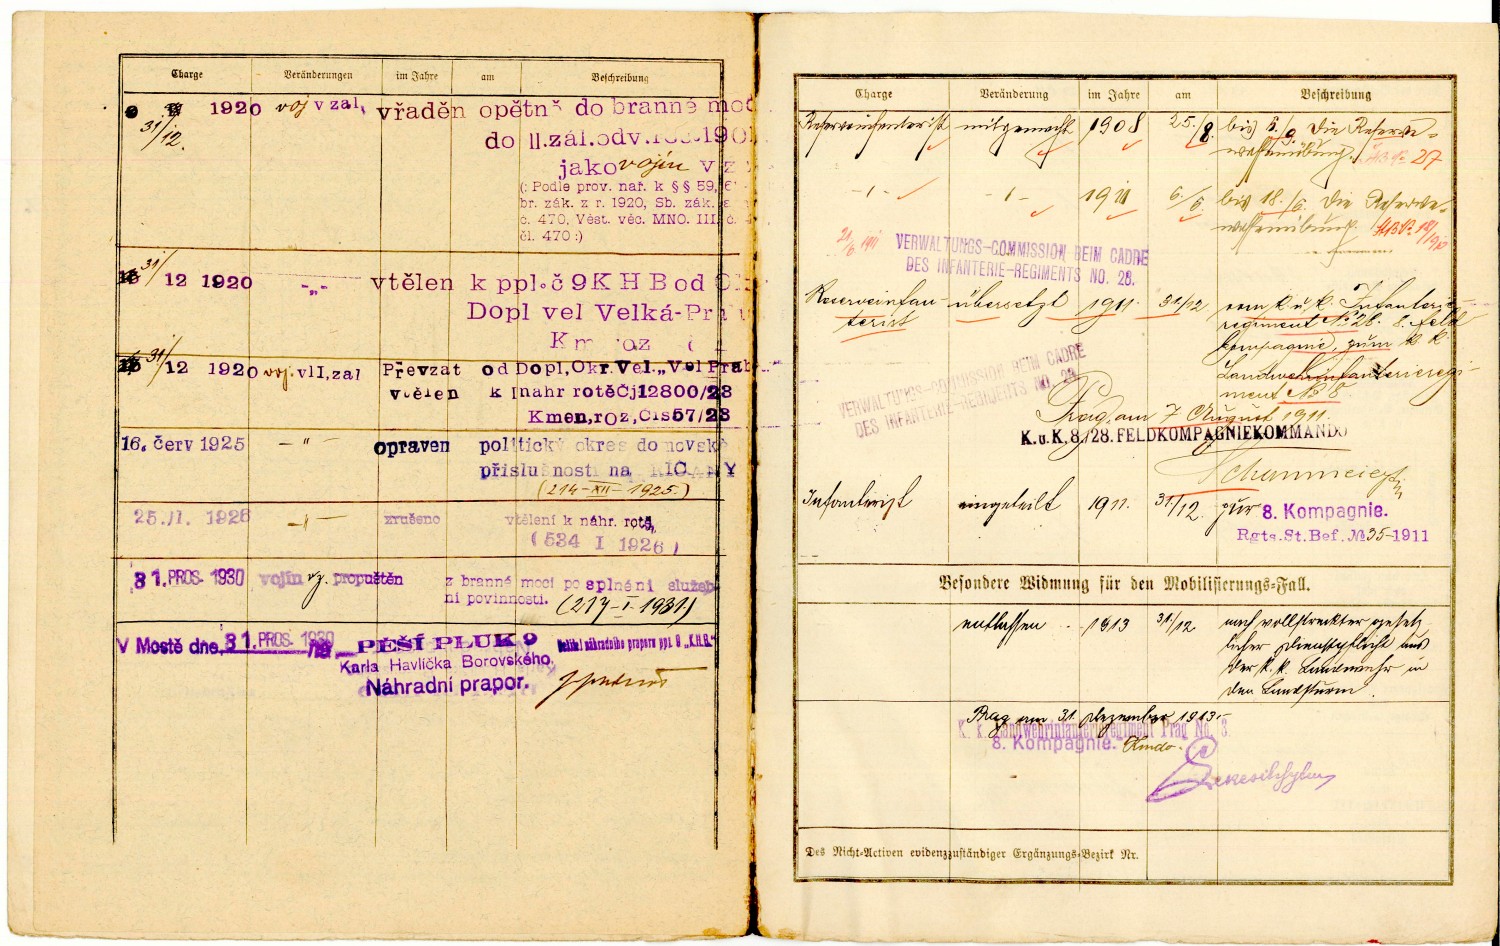 Charge Veränderungen im Jahre am Beschreibung
31/12. 1920 voj v zál. vřaděn opětně do branné moc
do II.zál.odv.
jako vojín v z
(: Podle prov. nař. k §§ 59,
br. zák. z r. 1920, Sb. zák. a
č. 470, Věst. věc. MNO. III. č.
čl. 470 :)
31/12 1920 -„- vtělen k ppl.č 9 K H B od
Dopl vel Velká-Pra
31/12 1920 voj. v II,zal Převzat od Dopl,Okr.Vel.„Vel Praha"
vtělen k náhr rotě Čj 12800/23
Kmen,roz,čís 57/23
16. červ 1925 -"- opraven politický okres domovské
příslušnosti na ŘÍČANY
(214-XII-1925.)
25./I. 1926 -"- zrušeno vtělení k náhr. rotě,
(534 I 1926)
31. PROS. 1930 vojín vz. propuštěn z branné moci po splnění služeb
ní povinnosti. (217-I-1931)
V Mostě dne, 31. PROS. 1930 PĚŠÍ PLUK 9 Velitel náhradního praporu ppl. 9 „K.H.B."
Karla Havlíčka Borovského.
Náhradní prapor.
Charge Veränderung im Jahre am Beschreibung
Reserveinfanterist mitgemacht 1908 25./8. bis 6./9. die Reserve-
waffenübung. 27
-"- -"- 1911 6./6. bis 18./6. die Reserve-
waffenübung.
VERWALTUNGS-COMMISSION BEIM CADRE
DES INFANTERIE-REGIMENTS NO. 28.
Reserveinfan- übersetzt 1911. 31./12 vom k. u. k. Infanterie-
terist regiment No 28. 8. Feld
kompagnie, zum k. k.
VERWALTUNGS-COMMISSION BEIM CADRE Landwehrinfanterieregi-
DES INFANTERIE-REGIMENTS NO. 28 ment No 8.
Prag, am 7 August 1911.
K. u. K. 8./28. FELDKOMPAGNIEKOMMANDO
Infanterist eingeteilt 1911. 31./12. zur 8. Kompagnie.
Rgts. St. Bef. № 35-1911
Besondere Widmung für den Mobilisierungs-Fall.
entlassen 1913 31./12 nach vollstreckter gesetz
licher Dienstpflicht aus
der k. k. Landwehr in
den Landsturm.
Prag am 31. Dezember 1913.
K. k. Landwehrinfanterieregiment Prag No. 8.
8. Kompagnie. Kmdo.
Des Nicht-Activen evidenzzuständiger Ergänzungs-Bezirk Nr.